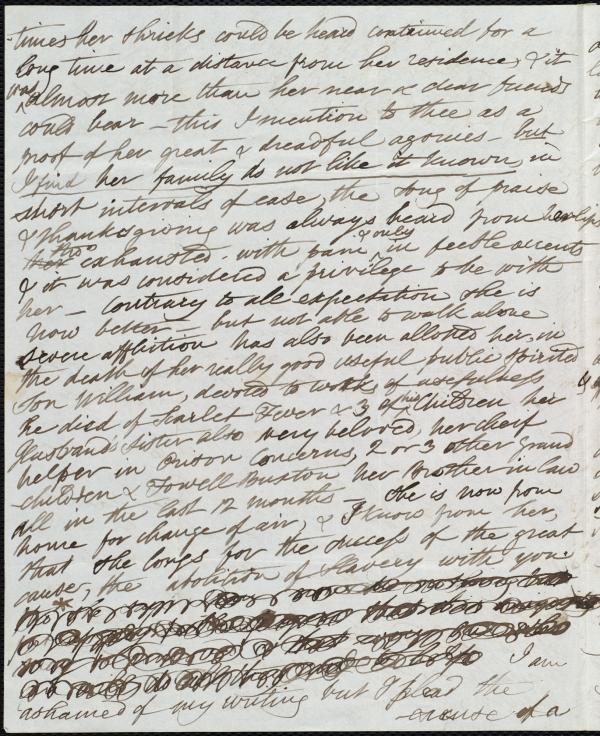 times her shrieks could be heard continued for a
long time at a distance from her residence, & it
was almost more than her near & dear friends
could bear – this I mention to thee as a
proof of her great & dreadful agonies – but
I find her family do not like it known, in
short intervals of ease, the song of praise
& thanksgiving was always heard from her lips
tho exhausted with pain & only in feeble accents
& it was considered a privilege to be with
her – contrary to all expectation she is
now better – but not able to walk alone
severe affliction has also been allotted her, in
the death of her really good useful public spirited
Son William, devoted to works of usefulness,
he died of Scarlet Fever & 3 of his Children her
Husband's Sister also very beloved, her cheif
helper in Prison Concerns, 2 or 3 other grand
children & Fowell Buxton her Brother in law
all in the last 12 months – She is now from
home for change of air, & I know from her,
that she longs for the success of the great
cause, the abolition of Slavery with you.
I am
ashamed of my writing but I plead the
excuse of a